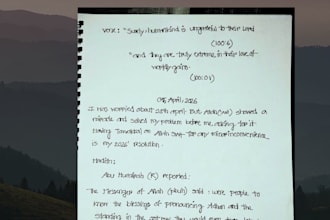 verse: "Surely humankind is ungrateful to their Lord
(100:6)
"and they are truly extreme in their love of
worldly gains.
(100:8)
08, April, 2026
I was worried about 10th April. But Allah (swt) showed a
miracle and solved my problem before me asking for it
Having Tawakkul on Allah swt for any minor inconvenience
is my 2026' resolution.
Hadith:
Abu Hurairah (R) reported:
The Messenger of Allah (pbuh) said: were people to
know the blessings of pronouncing Adhan and the
standing in the they would even